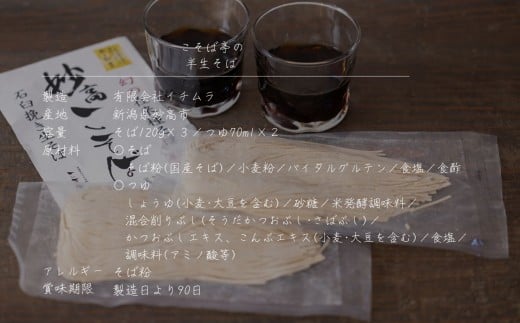 こそば亭の
半生そば
製造 有限会社イチムラ
産地 新潟県妙高市
容量 そば120g×3／つゆ70ml×2
原材料 〇そば
そば粉(国産そば)／小麦粉／バイタルグルテン／食塩／食酢
〇つゆ
しょうゆ(小麦・大豆を含む)／砂糖／米発酵調味料／
混合削りぶし(そうだかつおぶし・さばぶし)／
かつおぶしエキス、こんぶエキス(小麦・大豆を含む)／食塩／
調味料(アミノ酸等)
アレルギー そば粉
賞味期限 製造日より90日
妙高こそば
石臼挽き